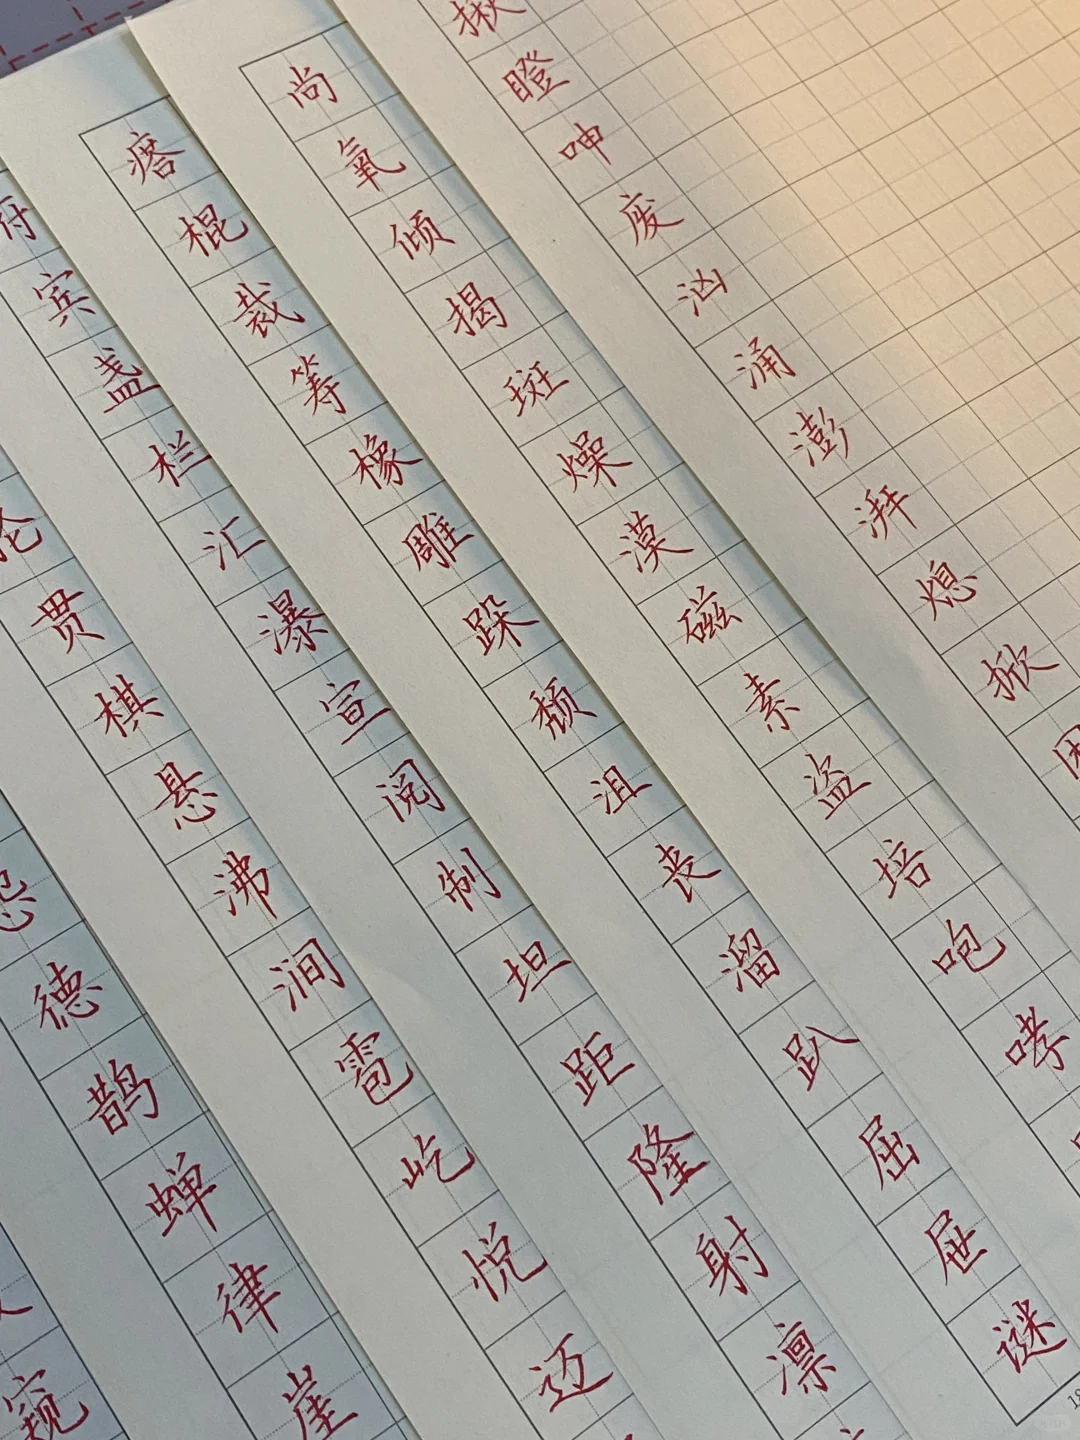 窥
德鹊蝉律崖
贯棋悬沸涧雹屹悦迈
宾盏栏汇瀑宣阅制坦距隆射凛
瘩棍裁筹橡雕跺颓沮丧溜趴屈屉谜
尚氧倾揭斑燥漠磁素盗培咆哮
揪瞪呻废汹涌澎湃熄掀